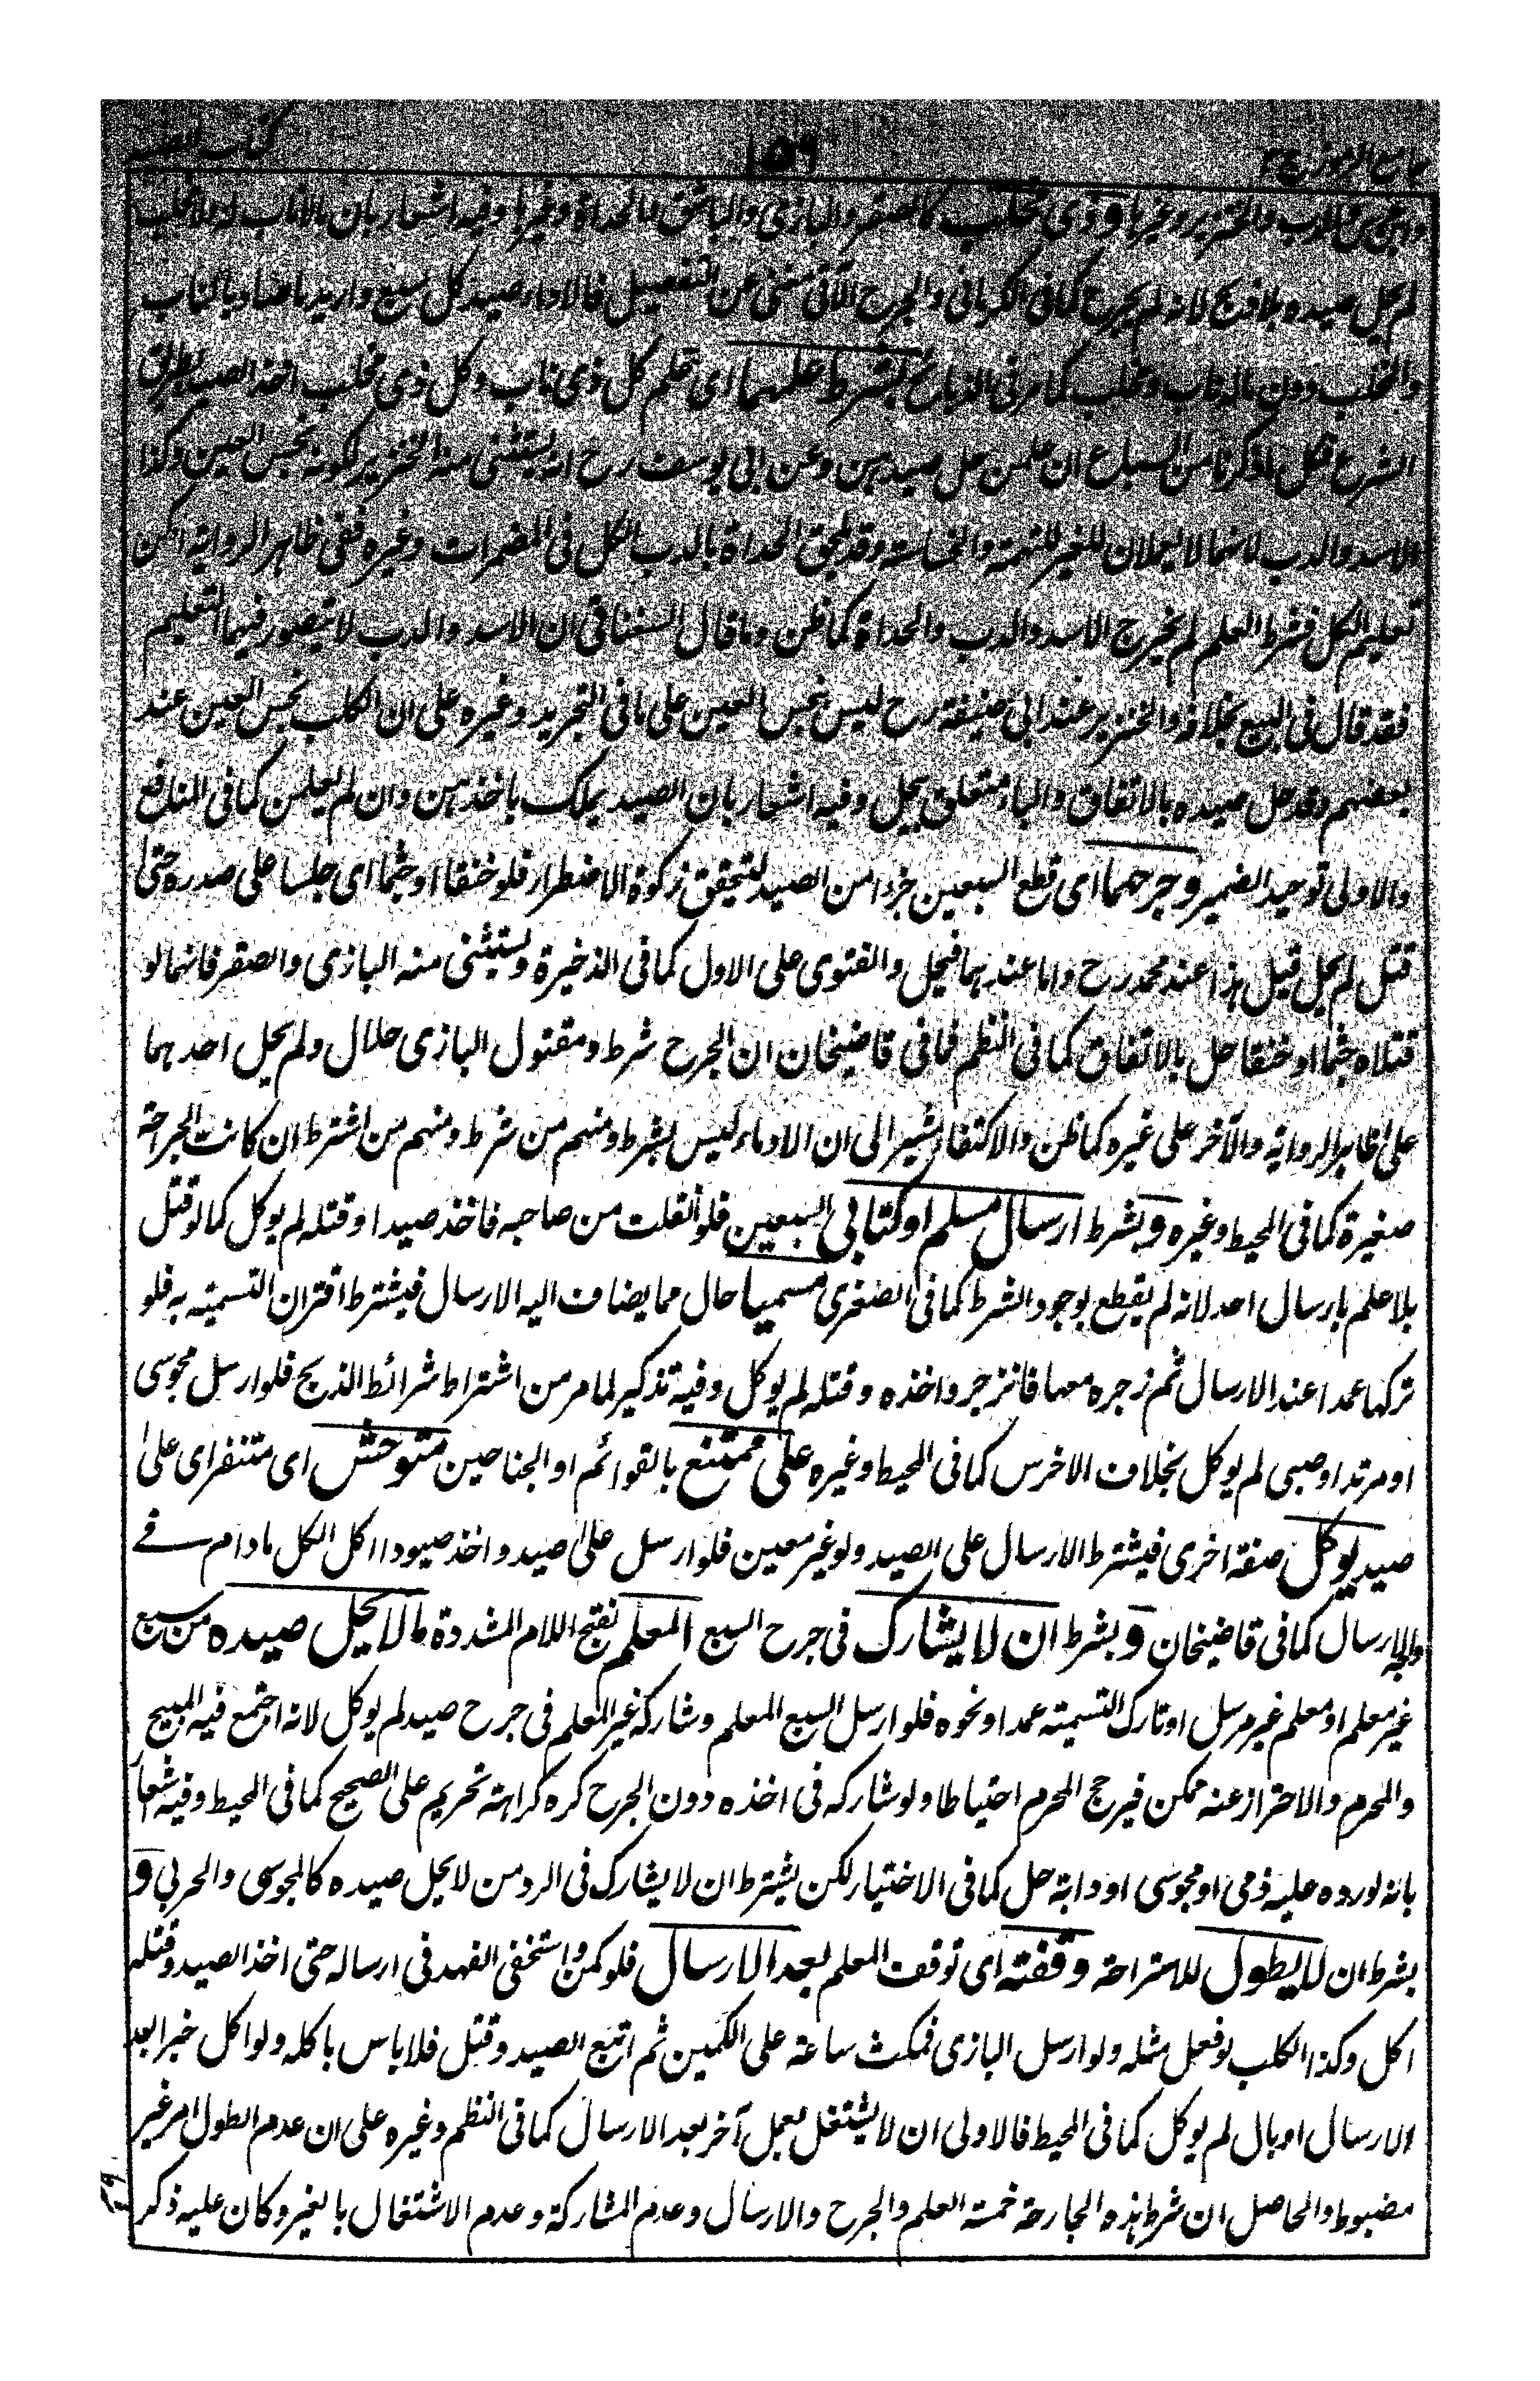 جامع الرموز ج ٣ ١٥٩ كتاب الصيد
والدب والخنزير وغيرها وذي مخلب كالصقر والبازي والباشق والحداة وغيرها وفيه اشعار بان مالاناب له ولا مخلب
لم يحل صيده بلا ذبح لانه لم يجرح كما في الكرماني والجرح الآتي مغني عن التفصيل فالاولى صيد كل سبع واريد بالناب
والمخلب دون مالاناب ومخلب كما مر في الذبائح بشرط علمهما اي علم كل ذي ناب وكل ذي مخلب اخذ الصيد بطريق
الشرع فكل ما ذكرنا من السباع ان علمن حل صيدهن وعن ابي يوسف رح انه يستثنى منه الخنزير لكونه نجس العين وكذا
الاسد والدب لانهما لا يعملان للغير للهمة والخساسة وقد يلحق الحداة بالدب الكل في المضمرات وغيره ففي ظاهر الرواية امكن
تعليم الكل فشرط العلم لم يخرج الاسد والدب والحداة كما ظن وما قال السغناقي ان الاسد والدب لا يتصور فيهما التعليم
فقد قال في البيع بخلافه والخنزير عند ابي حنيفة رح ليس نجس العين على ما في التجريد وغيره على ان الكلب نجس العين عند
بعضهم وقد حل صيده بالاتفاق والباء متعلق بيحل وفيه اشعار بان الصيد يملك باخذهن وان لم يعلمن كما في المنافع
والاولى توحيد الضمير وجرحهما اي قطع السبعين جزءا من الصيد لتحقق زكوة الاضطرار فلو خنقا او جثما اي جلسا على صدره حتى
قتل لم يحل قيل هذا عند محمد رح واما عندهما فيحل والفتوى على الاول كما في الذخيرة ويستثنى منه البازي والصقر فانهما لو
قتلاه جثما او خنقا حل بالاتفاق كما في النظم فما في قاضيخان ان الجرح شرط ومقتول البازي حلال ولم يحل احدهما
على ظاهر الرواية والآخر على غيره كما ظن والاكتفاء يشير الى ان الادماء ليس بشرط ومنهم من شرط ومنهم من اشترط ان كانت الجراحة
صغيرة كما في المحيط وغيره وبشرط ارسال مسلم او كتابي السبعين فلو انفلت من صاحبه فاخذ صيدا وقتله لم يوكل كما لو قتل
بلا علم بارسال احد لانه لم يقطع بوجود الشرط كما في الصغرى مسميا حال مما يضاف اليه الارسال فيشترط اقتران التسمية به فلو
تركها عمدا عند الارسال ثم زجره معها فانزجر واخذه وقتله لم يوكل وفيه تذكير لما مر من اشتراط شرائط الذبح فلو ارسل مجوسي
او مرتد او صبي لم يوكل بخلاف الاخرس كما في المحيط وغيره على ممتنع بالقوائم او الجناحين متوحش اي متنفر اي على
صيد يوكل صفة اخرى فيشترط الارسال على الصيد ولو غير معين فلو ارسل على صيد واخذ صيودا اكل الكل مادام في
وجه الارسال كما في قاضيخان وبشرط ان لا يشارك في جرح السبع المعلم بفتح اللام المشددة مالا يحل صيده من سبع
غير معلم او معلم غير مرسل او تارك التسمية عمدا ونحوه فلو ارسل السبع المعلم وشاركه غير المعلم في جرح صيد لم يوكل لانه اجتمع فيه المبيح
والمحرم والاحتراز عنه ممكن فيرجح المحرم احتياطا ولو شاركه في اخذه دون الجرح كره كراهة تحريم على الصحيح كما في المحيط وفيه اشعار
بانه لو رده عليه ذمي او مجوسي او دابة حل كما في الاختيار لكن يشترط ان لا يشارك في الرد من لا يحل صيده كالمجوسي والحربي و
بشرط ان لا يطول للاستراحة وقفته اي توقف المعلم بعد الارسال فلو كمن واستخفى الفهد في ارساله حتى اخذ الصيد وقتله
اكل وكذا الكلب لو فعل مثله ولو ارسل البازي فمكث ساعة على الكمين ثم اتبع الصيد وقتل فلا باس باكله ولو اكل خبزا بعد
الارسال او بال لم يوكل كما في المحيط فالاولى ان لا يشتغل بعمل آخر بعد الارسال كما في النظم وغيره على ان عدم الطول امر غير
مضبوط والحاصل ان شرط هذه الجارحة خمسة العلم والجرح والارسال وعدم المشاركة وعدم الاشتغال بالغير وكان عليه ذكر